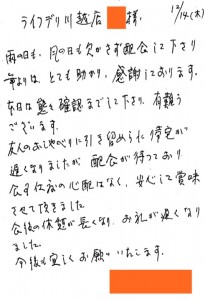 ライフデリ川越店 様. 12/14(木)
雨の日も、風の日も欠かさず配食して下さり
年よりは、とても助かり、感謝しております。
本日は態々確認までして下さり、有難う
ございます。
友人のおしゃべりに引き留められ帰宅が
遅くなりましたが 配食が待っており
食事仕度の心配はなく、安心して賞味
させて頂きました
食後の休憩が長くなり、お礼が遅くなり
ました。
今後も宜しくお願いいたします。